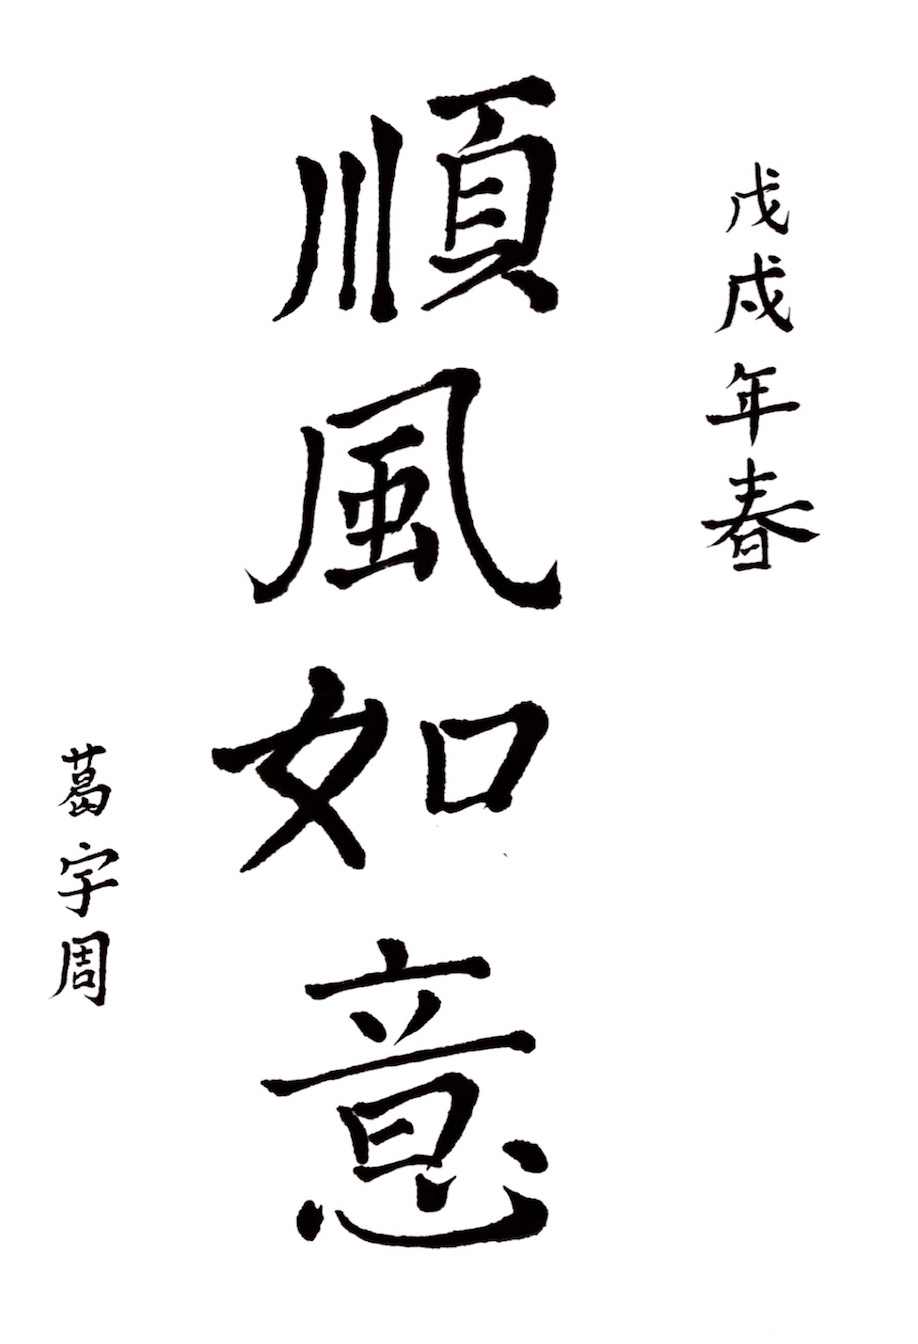 戊戌年春
順風如意
葛宇周